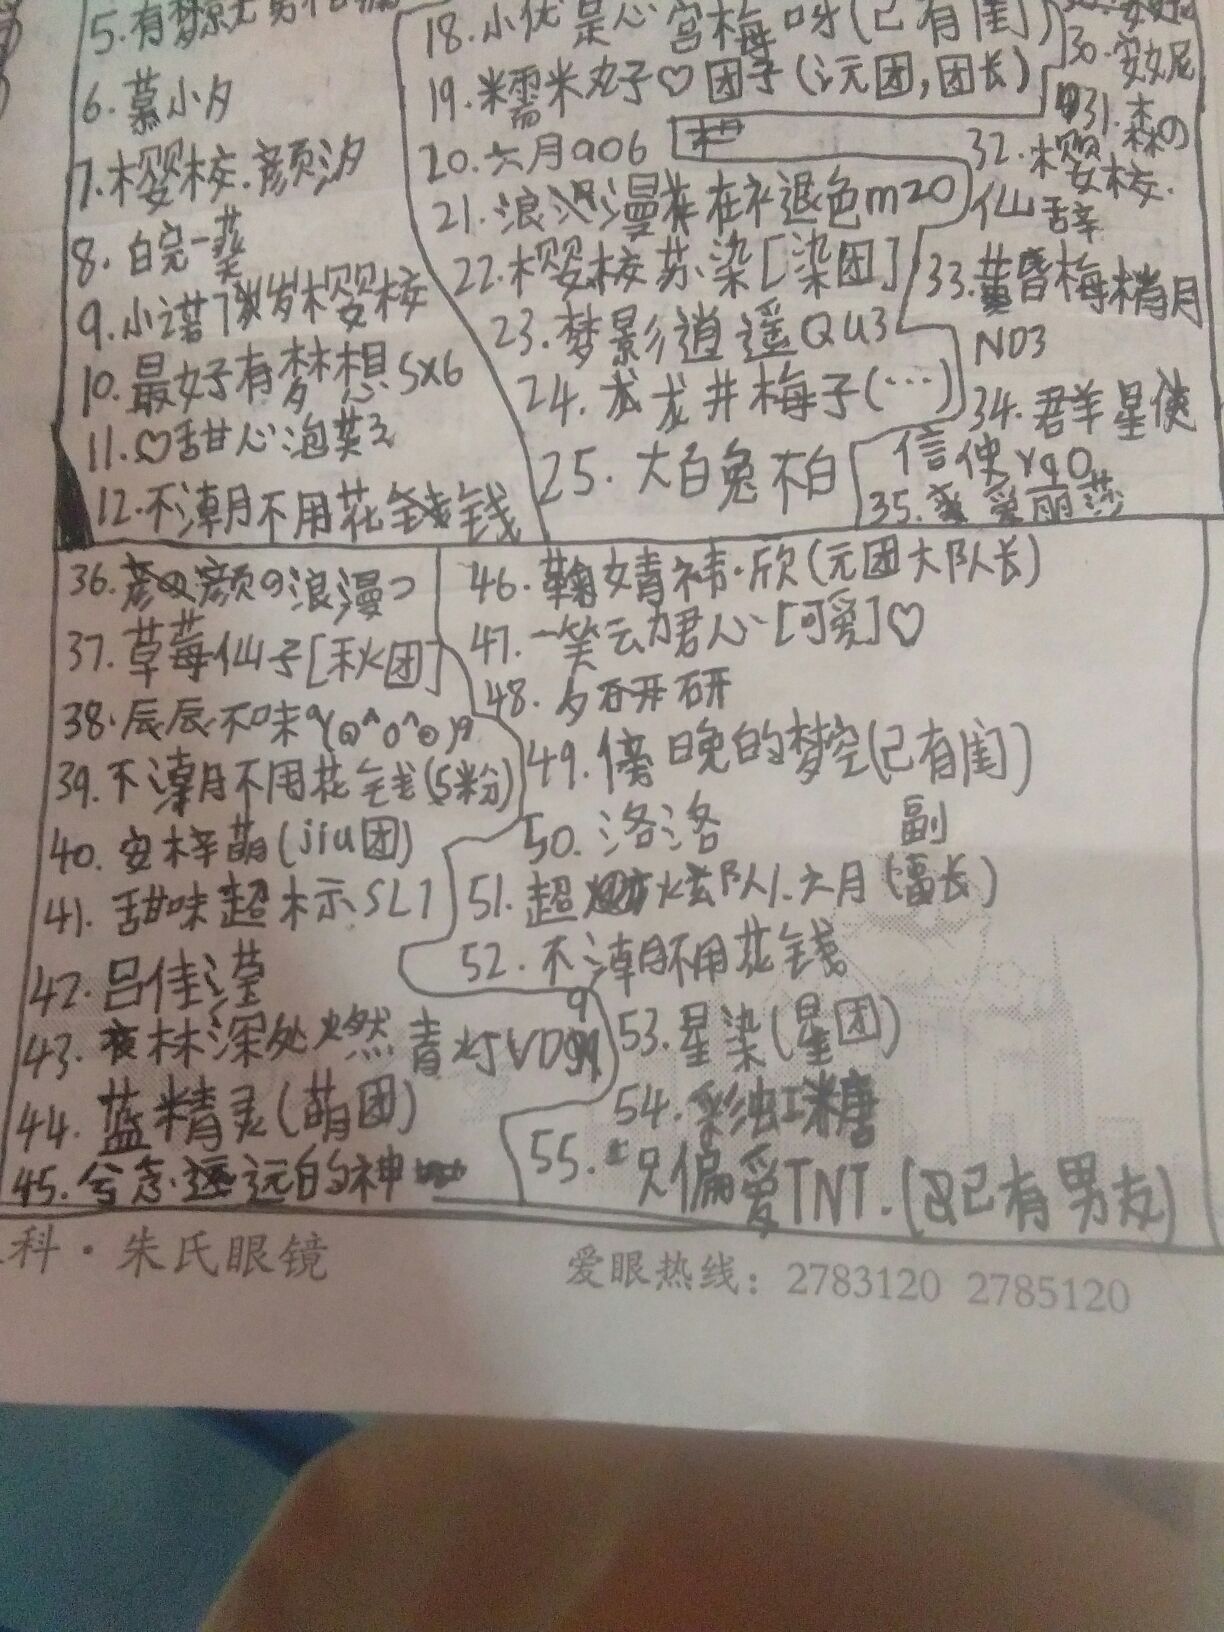 5.有梦
6.慕小夕
7.樱桉.颜汐
8.白完一
9.小诺7岁樱桉
10.最好有梦想5x6
11.♡甜心泡芙
12.不潮不用花钱
18.小优是心宫梅呀(已有闺)
19.糯米丸子♡团子(沅团,团长)
20.六月906
21.浪漫在补退色m20
22.樱桉苏染[染团]
23.梦影逍遥QU3
24.龙井梅子(…)
25.大白兔
30.安妮
31.森の
32.樱桉.
仙辞
33.黄昏梅梢月
ND3
34.群星使
信使Yq0
35.爱丽莎
36.颜の浪漫つ
37.草莓仙子[秋团]
38.辰辰不味
39.不潮不用花钱(5粉)
40.安梓萌(jiu团)
41.甜味超标SL1
42.吕佳滢
43.林深处燃青灯VD9
44.蓝精灵(萌团)
45.兮念.遥远的神
46.鞠婧祎.欣(元团大队长)
47.一笑云力君心[可爱]♡
48.夕研研
49.傍晚的梦空(已有闺)
50.洛洛
51.超炫队1.六月(副长)
52.不潮不用花钱
53.星染(星团)
54.彩虹糖
55.只偏爱TNT.(已有男友)
科·朱氏眼镜
爱眼热线：2783120 2785120